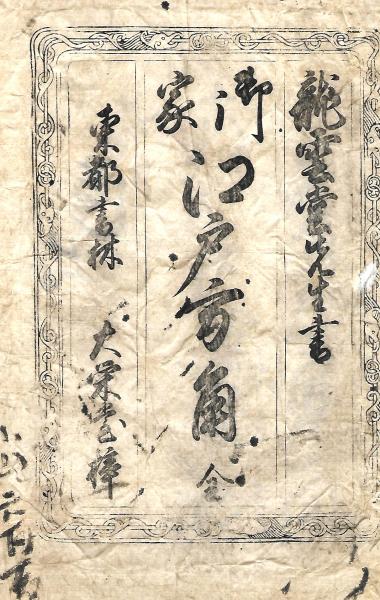 龍雲堂先生書
御家
江戸方角 全
東都書林 大栄堂梓